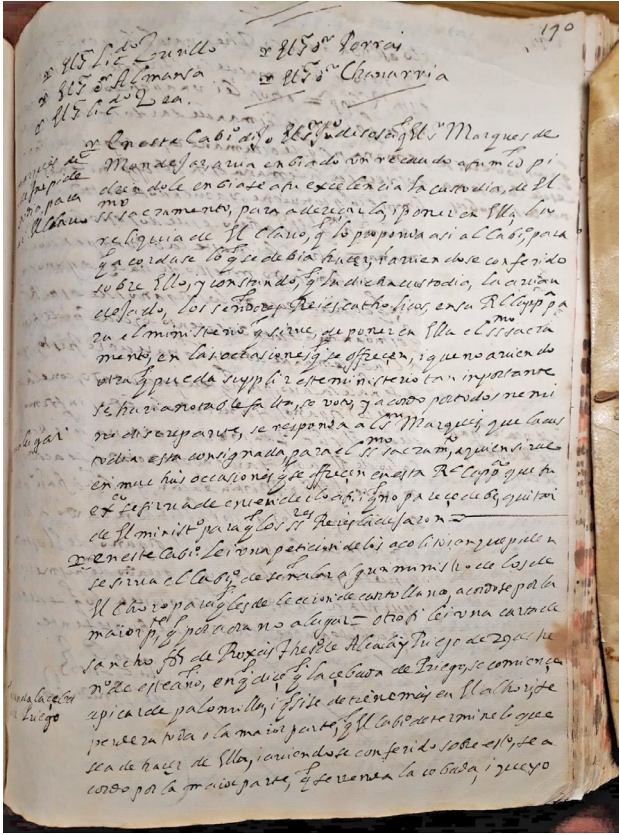 190
El Sr Licdo Trujillo El Sor Porras
El Sor Almansa El Sor Chavarria
El Sr Licdo Zea.
En este Cabio dijo El Sr Marques de
Mondejar avia enbiado Un recaudo a su mrd pi
diendole enbiase a su excelencia la custodia, de El
ssmo sacramento, para adereçarla, i poner en Ella la
reliquia de El Clavo, q lo proponia asi al Cabio para
q acordase lo q se debia hacer, i aviendose conferido
sobre Ello, y constando, q la dicha custodia, la avian
dejado, los señores Reies catholicos, en su Rl Capp pa
ra el ministerio q sirve, de poner en Ella el ssmo sacra
mento, en las occasiones q se offrecen, i que no aviendo
otra q pueda supplir este ministerio tan importante
se haria notable falta, se votó, y acordó por todos nemi
ne discrepante, se responda al Sr Marques, que la cus
todia esta consignada para el ssmo sacramto, a quien sirve
en muchas occasiones q se offrecen en esta Rl Capp que su
exa se sirva de entenderlo asi, q no parece debe quitar
de El ministo para q los sres Reies la dejaron
en este Cabio lei una peticion de los acolitos, en que piden
se sirva el Cabio de señalar algun ministro de los de
El Choro para q les de leccion de canto llano, acordose por la
maior pte, q por aora no a lugar = otrosi lei una carta de
sancho de Roxas Thesor de Alcala y Priego de 29 de
no de este año, en q dice q la cebada de Priego, se comiença
a picar de palomilla, i q si se detiene mas en El alhori se
perdera toda o la maior parte, q El Cabio determine lo que
se a de hacer de Ella, i aviendose conferido sobre esto, se a
cordo por la maior parte, q se venda la cebada, i que yo
no a lugar
venda la cebada
de Priego